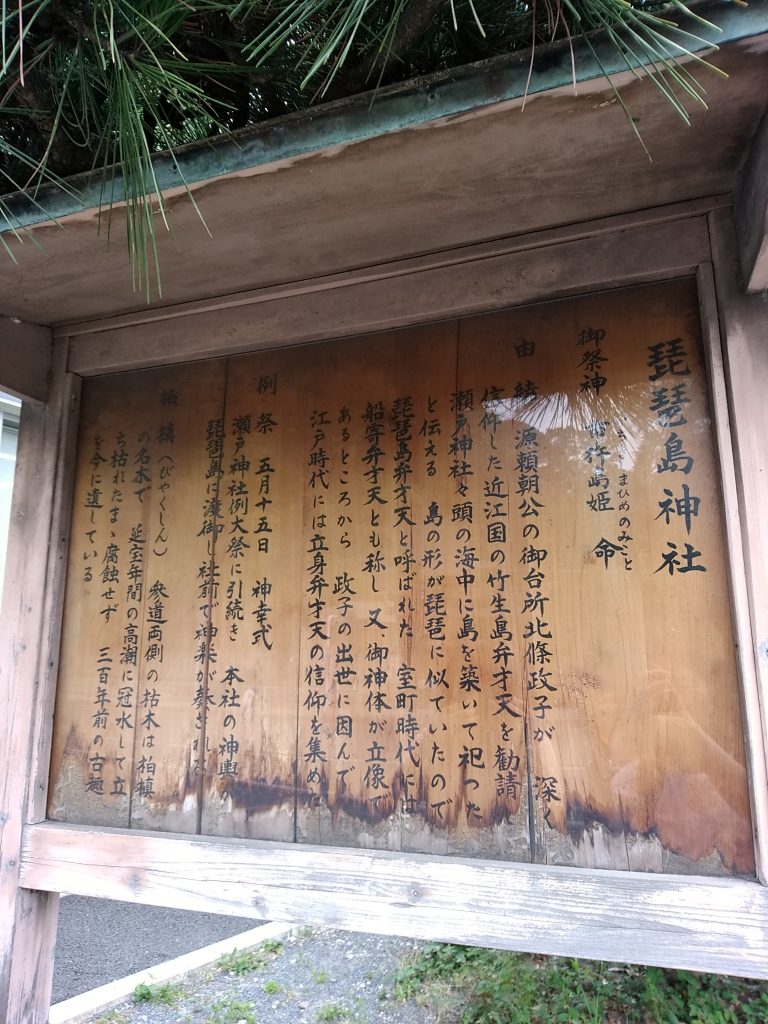 琵琶島神社
御祭神 市杵島姫 命
いちきしまひめのみこと
由緒 源頼朝公の御台所北條政子が 深く
信仰した近江国の竹生島弁才天を勧請し
瀬戸神社々頭の海中に島を築いて祀った
と伝える 島の形が琵琶に似ていたので
琵琶島弁才天と呼ばれた 室町時代には
船寄弁才天とも称し 又、御神体が立像で
あるところから 政子の出世に因んで
江戸時代には立身弁才天の信仰を集めた
例祭 五月十五日 神幸式
瀬戸神社例大祭に引続き 本社の神輿が
琵琶島に渡御し社前で神楽が奏される
柏槙(びゃくしん) 参道両側の枯木は柏槙
の名木で 延宝年間の高潮に冠水して立
ち枯れたまゝ腐蝕せず 三百年前の古趣
を今に遺している